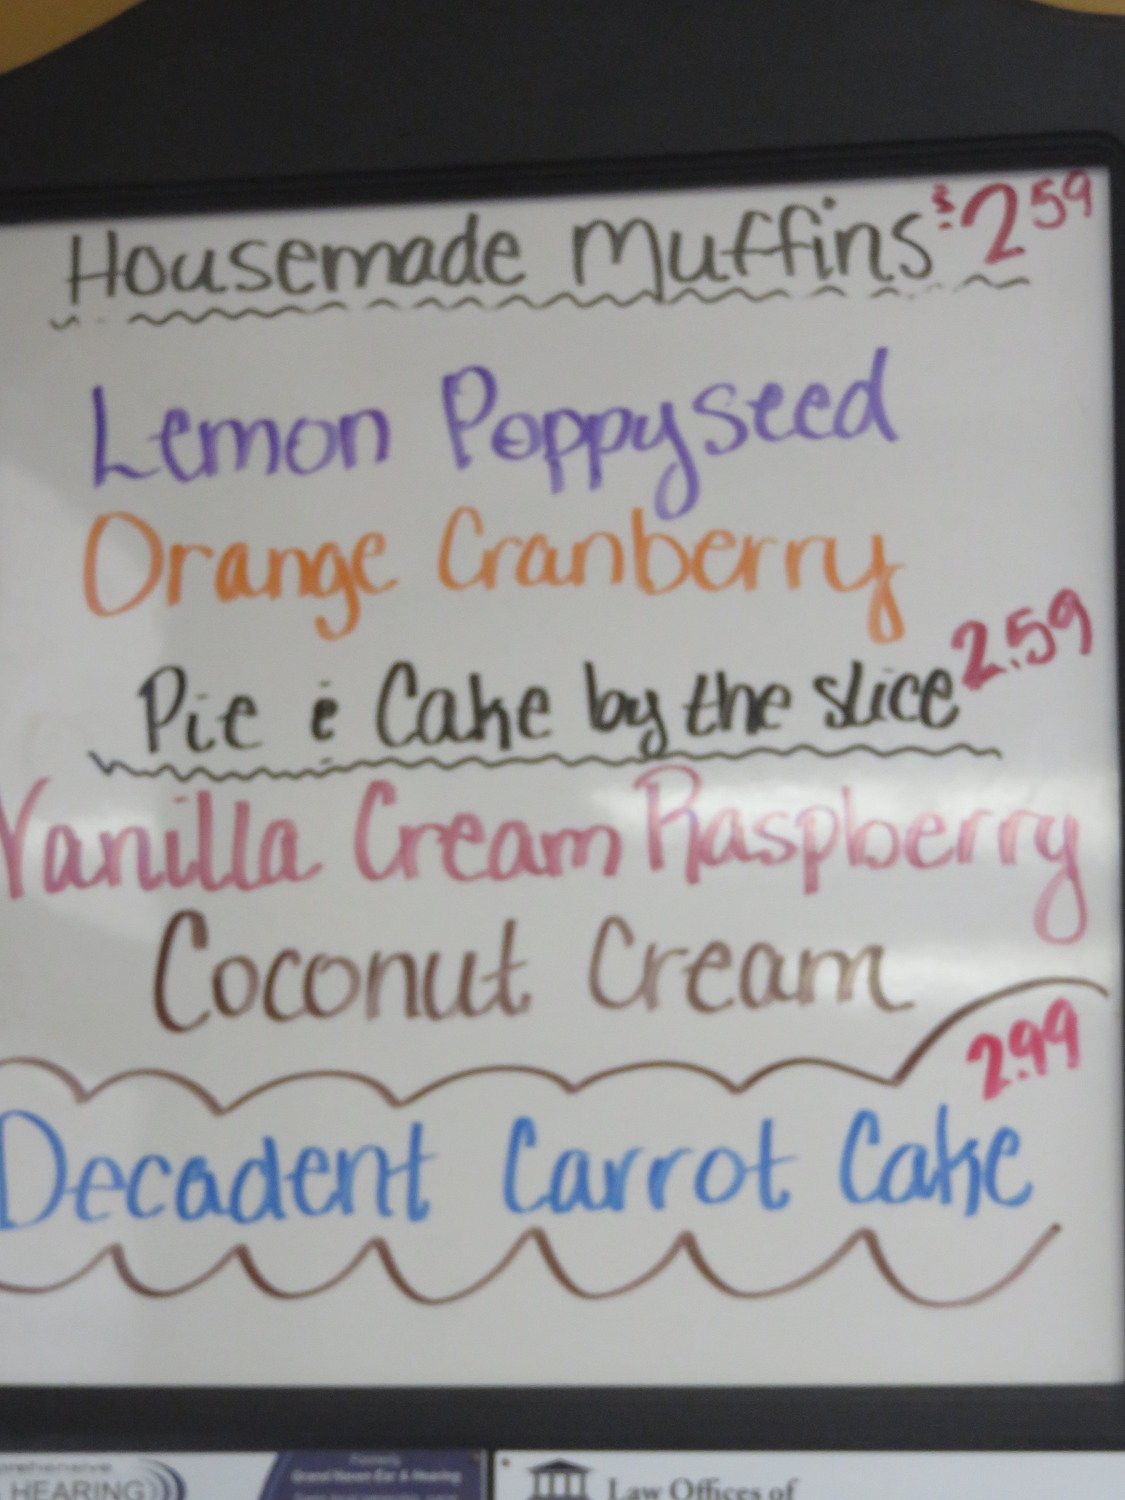 Housemade Muffins $2.59
Lemon Poppyseed
Orange Cranberry
Pie & Cake by the slice 2.59
Vanilla Cream Raspberry
Coconut Cream
2.99
Decadent Carrot Cake
HEARING
Grand Haven Ear & Hearing
Law Offices of